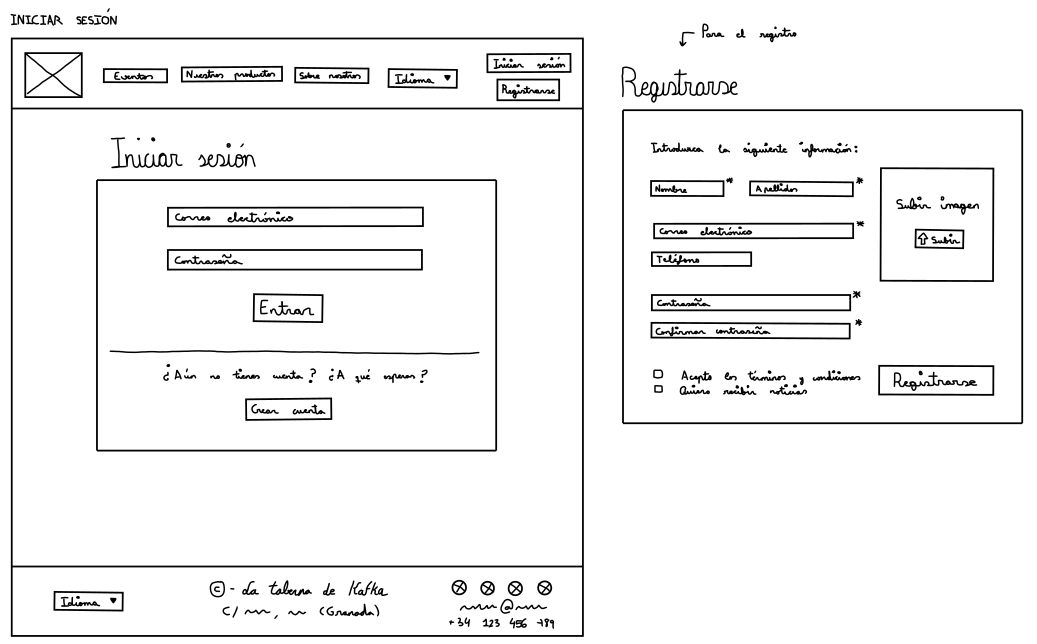 INICIAR SESIÓN
Eventos
Nuestros productos
Sobre nosotros
Idioma
Iniciar sesión
Registrarse
Iniciar sesión
Correo electrónico
Contraseña
Entrar
¿Aún no tienes cuenta? ¿A qué esperas?
Crear cuenta
Idioma
© - La taberna de Kafka
C/ , (Granada)
@
+34 123 456 789
Para el registro
Registrarse
Introduzca la siguiente información:
Nombre *
Apellidos *
Correo electrónico *
Teléfono
Contraseña *
Confirmar contraseña *
Subir imagen
Subir
Acepto los términos y condiciones
Quiero recibir noticias
Registrarse